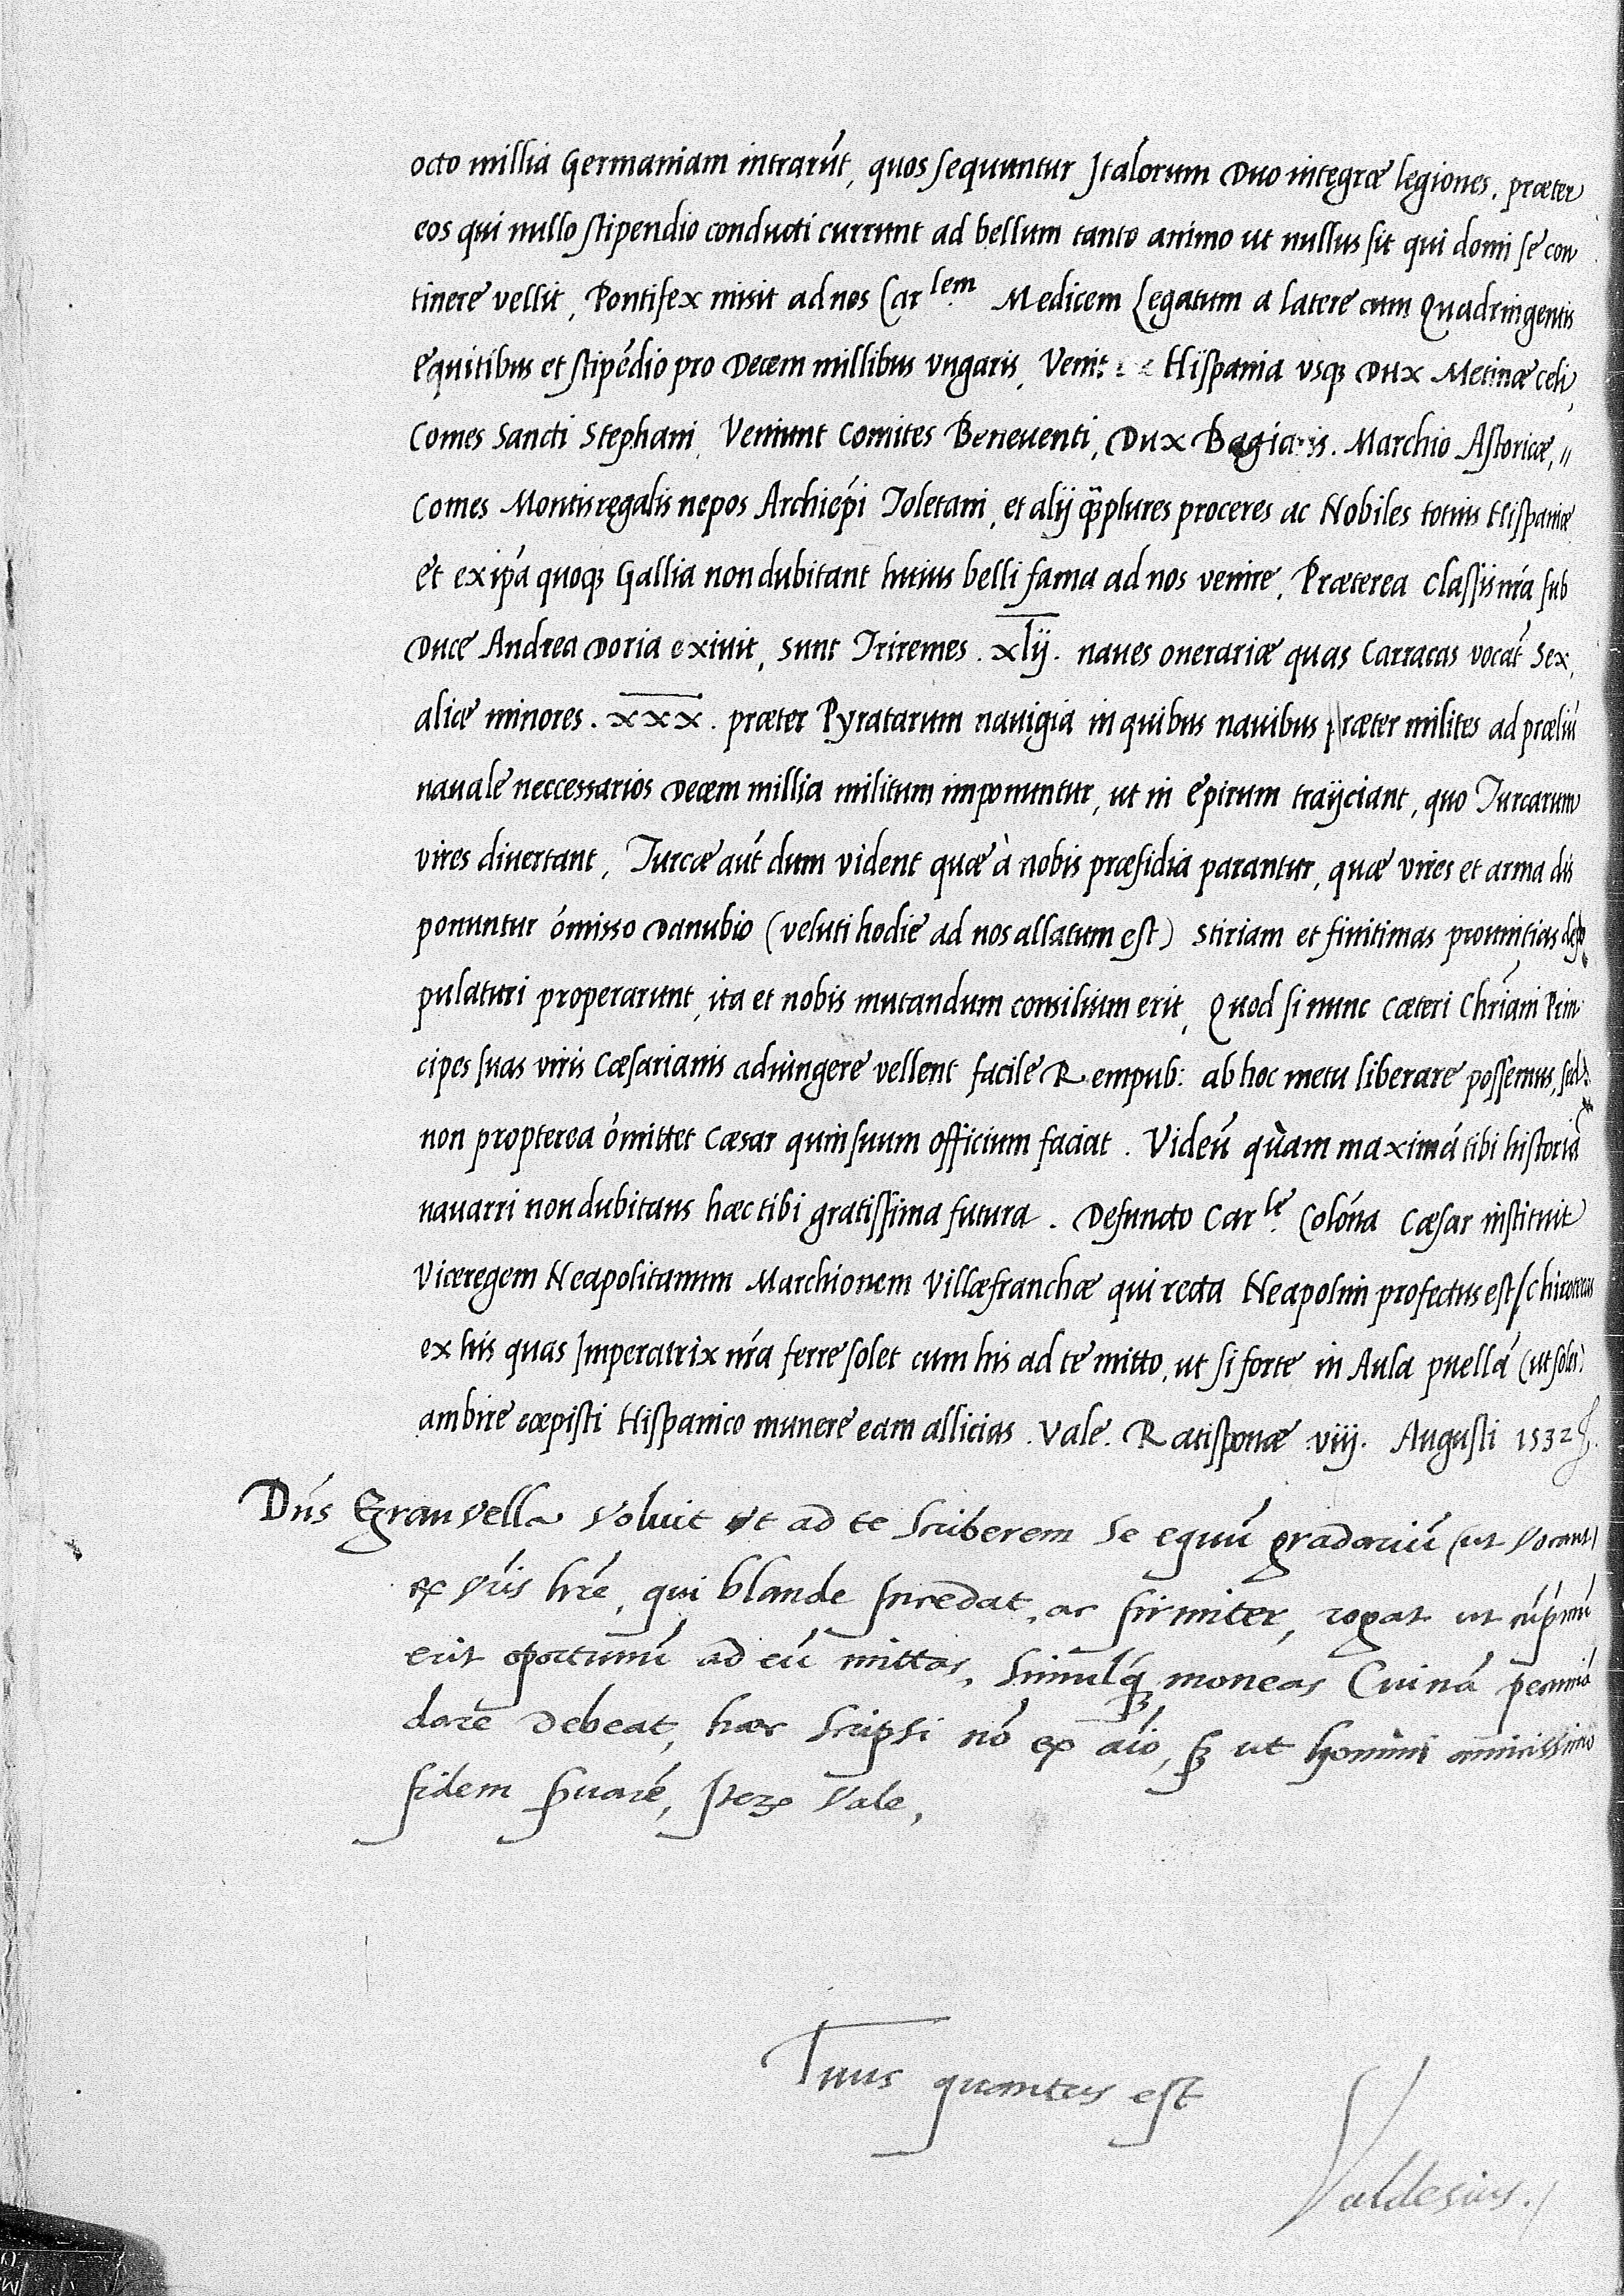 octo millia Germaniam intrarũt, quos sequuntur Italorum Duo integræ legiones, præter
eos qui nullo stipendio conducti currunt ad bellum tanto animo ut nullus sit qui domi se con
tinere vellit, Pontifex misit ad nos Carlem Medicem Legatum a latere cum Quadringentis
equitibus et stipẽdio pro Decem millibus ungaris, Venit Hispania usq; Dux Metinæ celi,
Comes Sancti Stephani, Veniunt Comites Beneventi, Dux . Marchio Astoricæ, //
Comes Montisregalis nepos Archiep̃i Toletani, et alij q̃ plures proceres ac Nobiles totius Hispaniæ
et ex ip̃a quoq; Gallia non dubitant huius belli fama ad nos venire, Præterea Classis nr̃a sub
Duce Andrea Doria exivit, sunt Triremes . xlij . naves onerariæ quas Carracas vocãt sex,
aliæ minores . xxx . præter Pyratarum navigia in quibus navibus præter milites ad præliũ
navale neccessarios Decem millia militum imponuntur, ut in epirum traijciant, quo Turcarum
vires divertant, Turcæ aut̃ dum vident quæ à nobis præsidia parantur, quæ vires et arma dis
ponuntur omisso Danubio (veluti hodie ad nos allatum est) Stiriam et finitimas provintias depo
pulaturi properarunt, ita et nobis mutandum consilium erit, Quod si nunc Cæteri Chr̃iani Prin
cipes suas viris Cæsarianis adiungere vellent facile Rempub: ab hoc metu liberare possemus, sed
non propterea omittet Cæsar quin suum officium faciat . Viden̄ quàm maximã tibi historiã
navarri non dubitans hæc tibi gratissima futura . Defuncto Carle Colõna Cæsar instituit
Viceregem Neapolitanum Marchionem Villæfranchæ qui recta Neapolim profectus est / Chirotecas
ex his quas Imperatrix nr̃a ferre solet cum his ad te mitto, ut si forte in Aula puellã (ut soles)
ambire cœpisti Hispanico munere eam allicias . Vale . Ratisponæ . viij . Augusti 1532
Dñs Granvella voluit ut ad te scriberem se equũ gradariũ (ut vocant)
ex hr̃e, qui blande incedat, ac firmiter, rogat ut
erit oportunũ ad eũ mittas, simulq; moneas Cuinã pecuniã
dare debeat, hæc scripsi nõ ex aĩo, s; ut homini amicissimo
fidem servarẽ, Iterũ vale,
Tuus quantus est
Valdesius ./